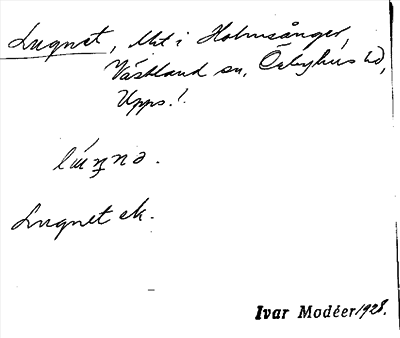 Lugnet, lht i Holmsånger,
Västland sn, Örbyhus hd,
Upps. l.
Lugnet ek.
Ivar Modéer 1928.